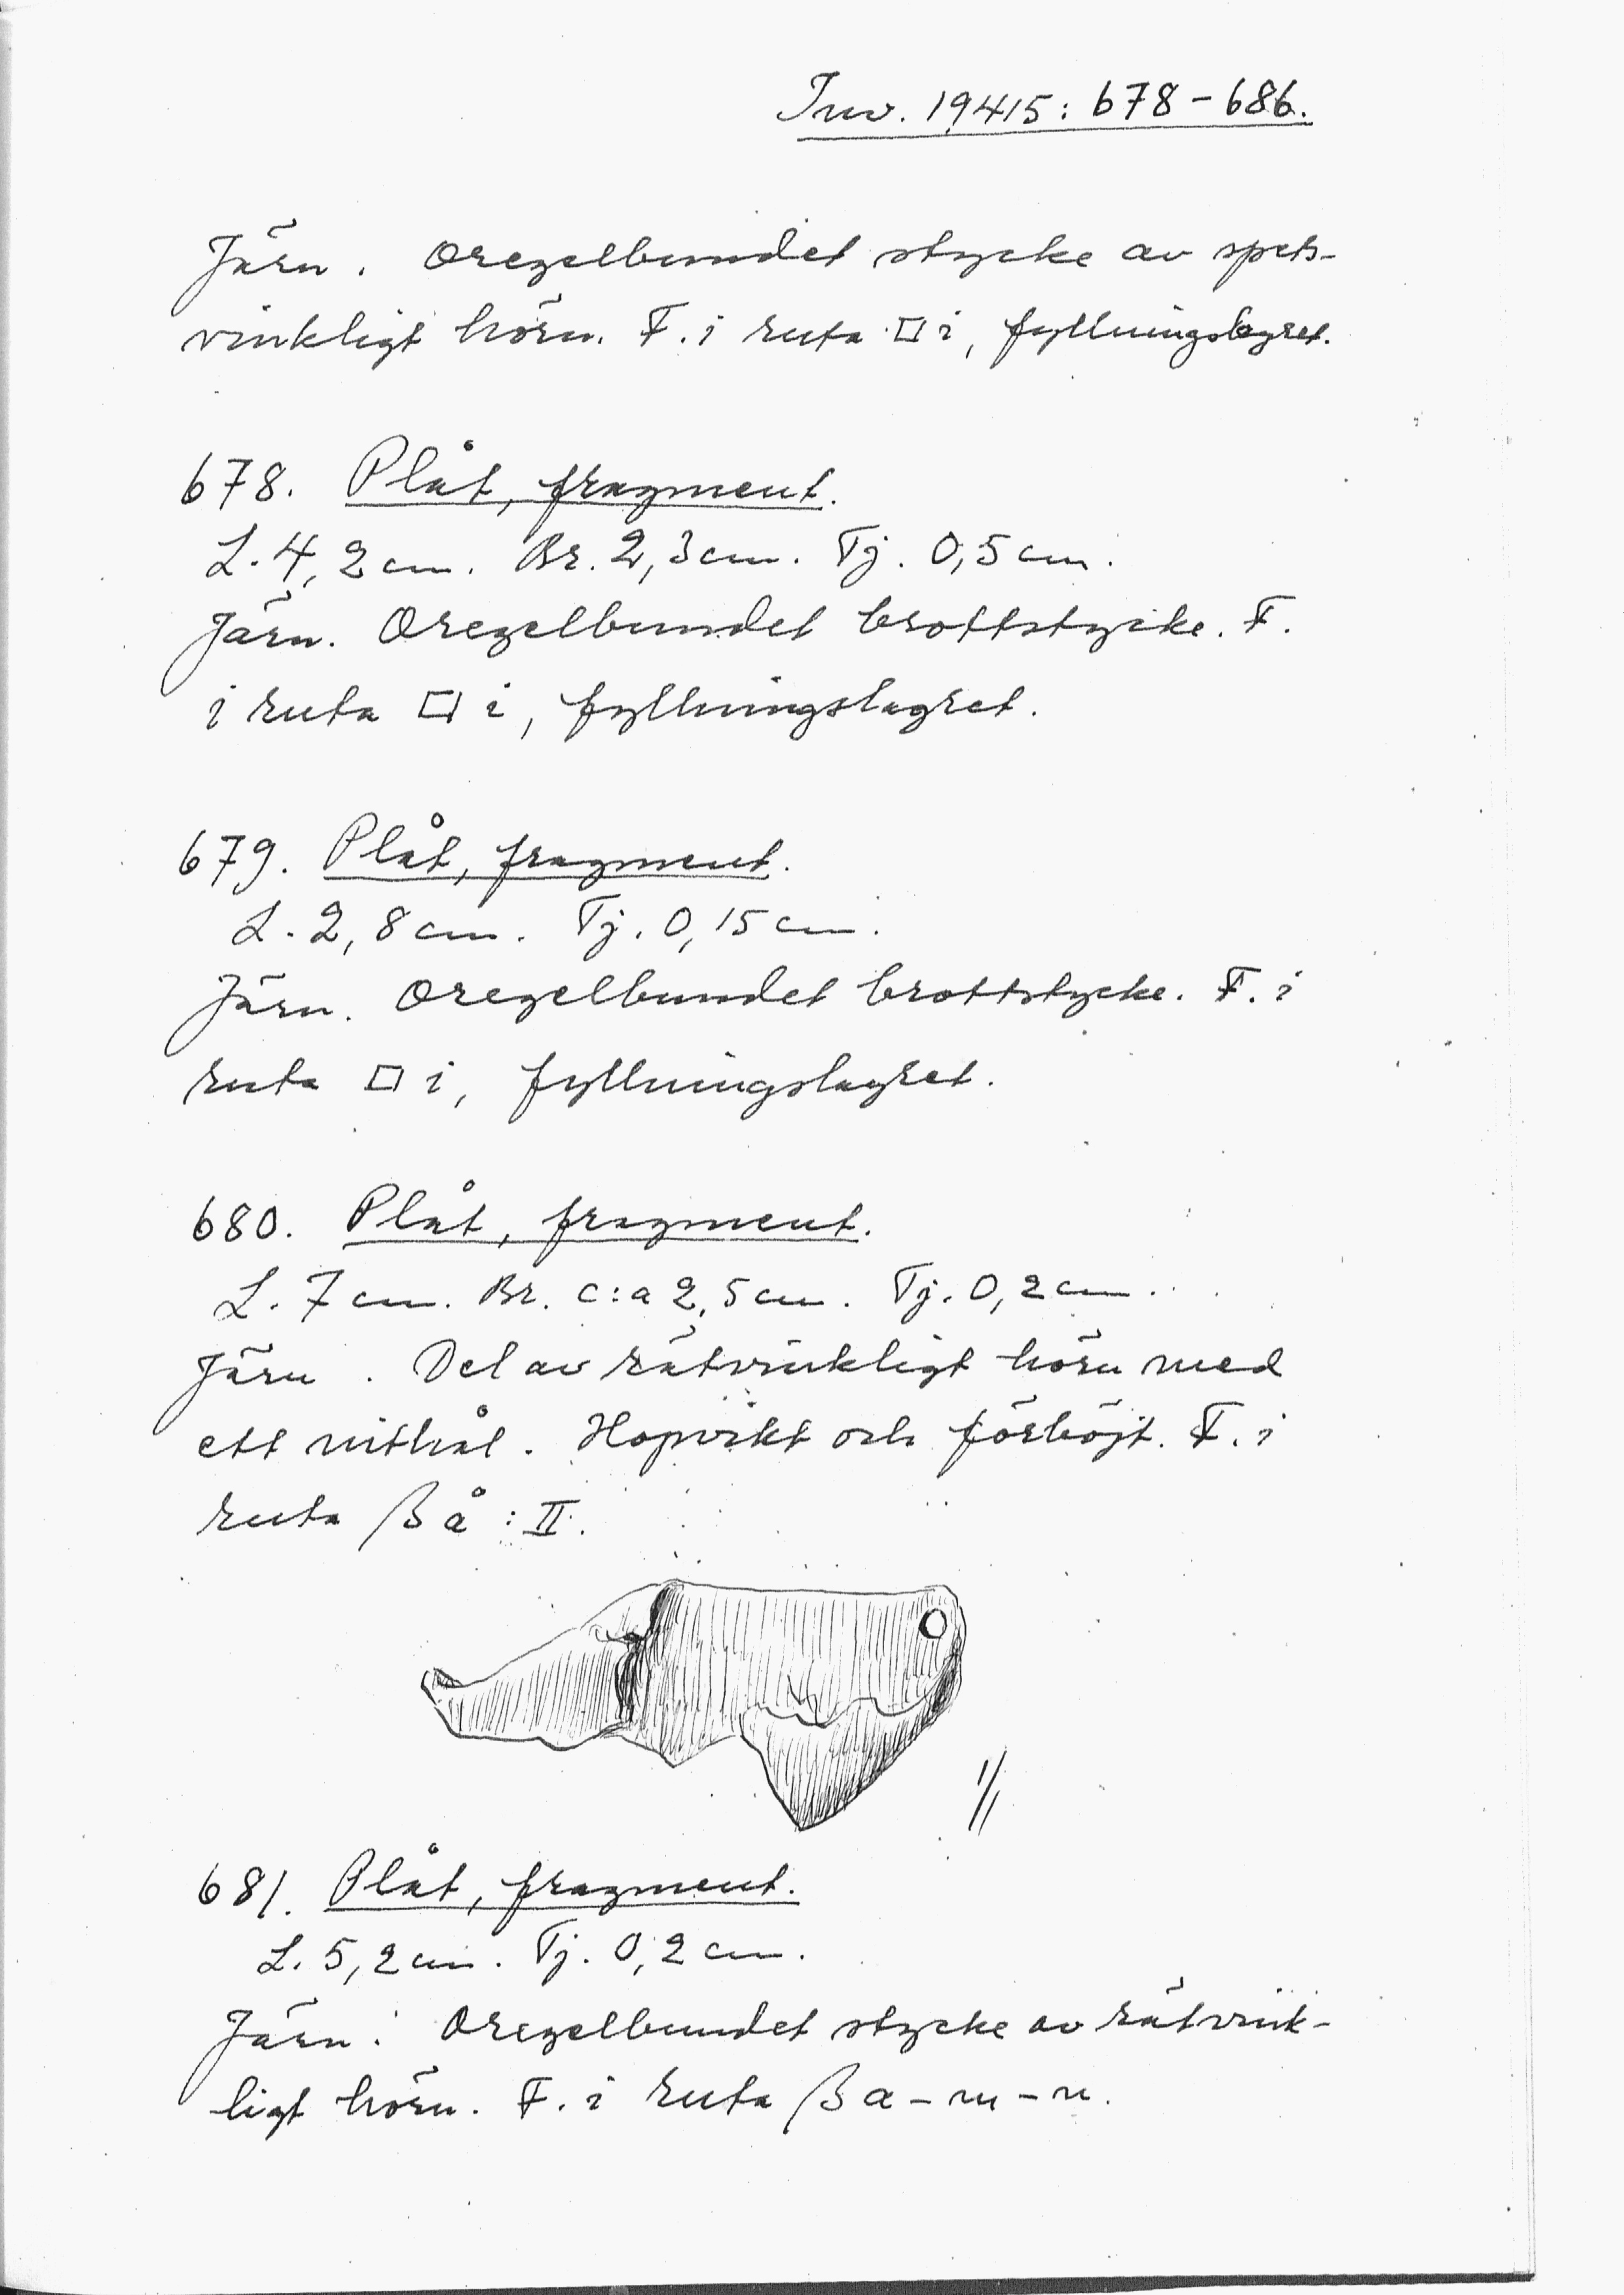 Inv. 19415: 678-686.
Järn. Oregelbundet stycke av spets-
vinkligt hörn. F. i ruta □ i, fyllningslagret.
678. Plåt, fragment.
L. 4,2 cm. Br. 2,3 cm. Tj. 0,5 cm.
Järn. Oregelbundet brottstycke. F.
i ruta □ i, fyllningslagret.
679. Plåt, fragment.
L. 2,8 cm. Tj. 0,15 cm.
Järn. Oregelbundet brottstycke. F. i
ruta □ i, fyllningslagret.
680. Plåt, fragment.
L. 7 cm. Br. c:a 2,5 cm. Tj. 0,2 cm.
Järn. Del av rätvinkligt hörn med
ett nithål. Hopvikt och förböjt. F. i
ruta ß å : II.
1/1
681. Plåt, fragment.
L. 5,2 cm. Tj. 0,2 cm.
Järn. Oregelbundet stycke av rätvink-
ligt hörn. F. i ruta ß a - m - n.